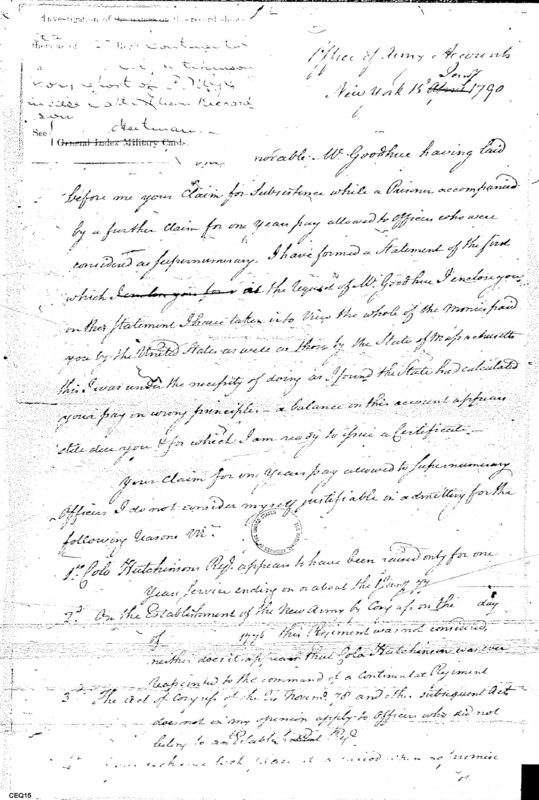 Investigation of the record shows
See
General Index Military Cards.
Office of Army Accounts
New York 15 Jany 1790
Mr. Goodhue having laid
before me your Claim for Subsistence while a Prisoner accompanied
by a further claim for one years pay allowed to Officers who were
considered as Supernumerary. I have formed a Statement of the first
which at the request of Mr. Goodhue I enclose you
on this Statement I have taken into View the whole of the Monies paid
you by the United States as well as those by the State of Massachusetts
this I was under the necessity of doing as I found the State had calculated
your pay on wrong principles - a balance on this account appears
still due you & for which I am ready to issue a Certificate -
Your Claim for one Years pay allowed to Supernumerary
Officers I do not consider myself justifiable in admitting for the
following reasons Viz
1st Colo Hutchinsons Regt. appears to have been raised only for one
Years Service ending on or about the 1 Jany 77
2d On the Establishment of the New Army by Congress on the day
of 1776 this Regiment was not considered,
neither does it appear that Colo Hutchinson was ever
reappointed to the command of a Continental Regiment
3d The Act of Congress of the 24 Novemr. 78 and other subsequent Act
does not in my openion apply to Officers who did not
belong to an Regt.
took place at a period when no promise
CEQ15